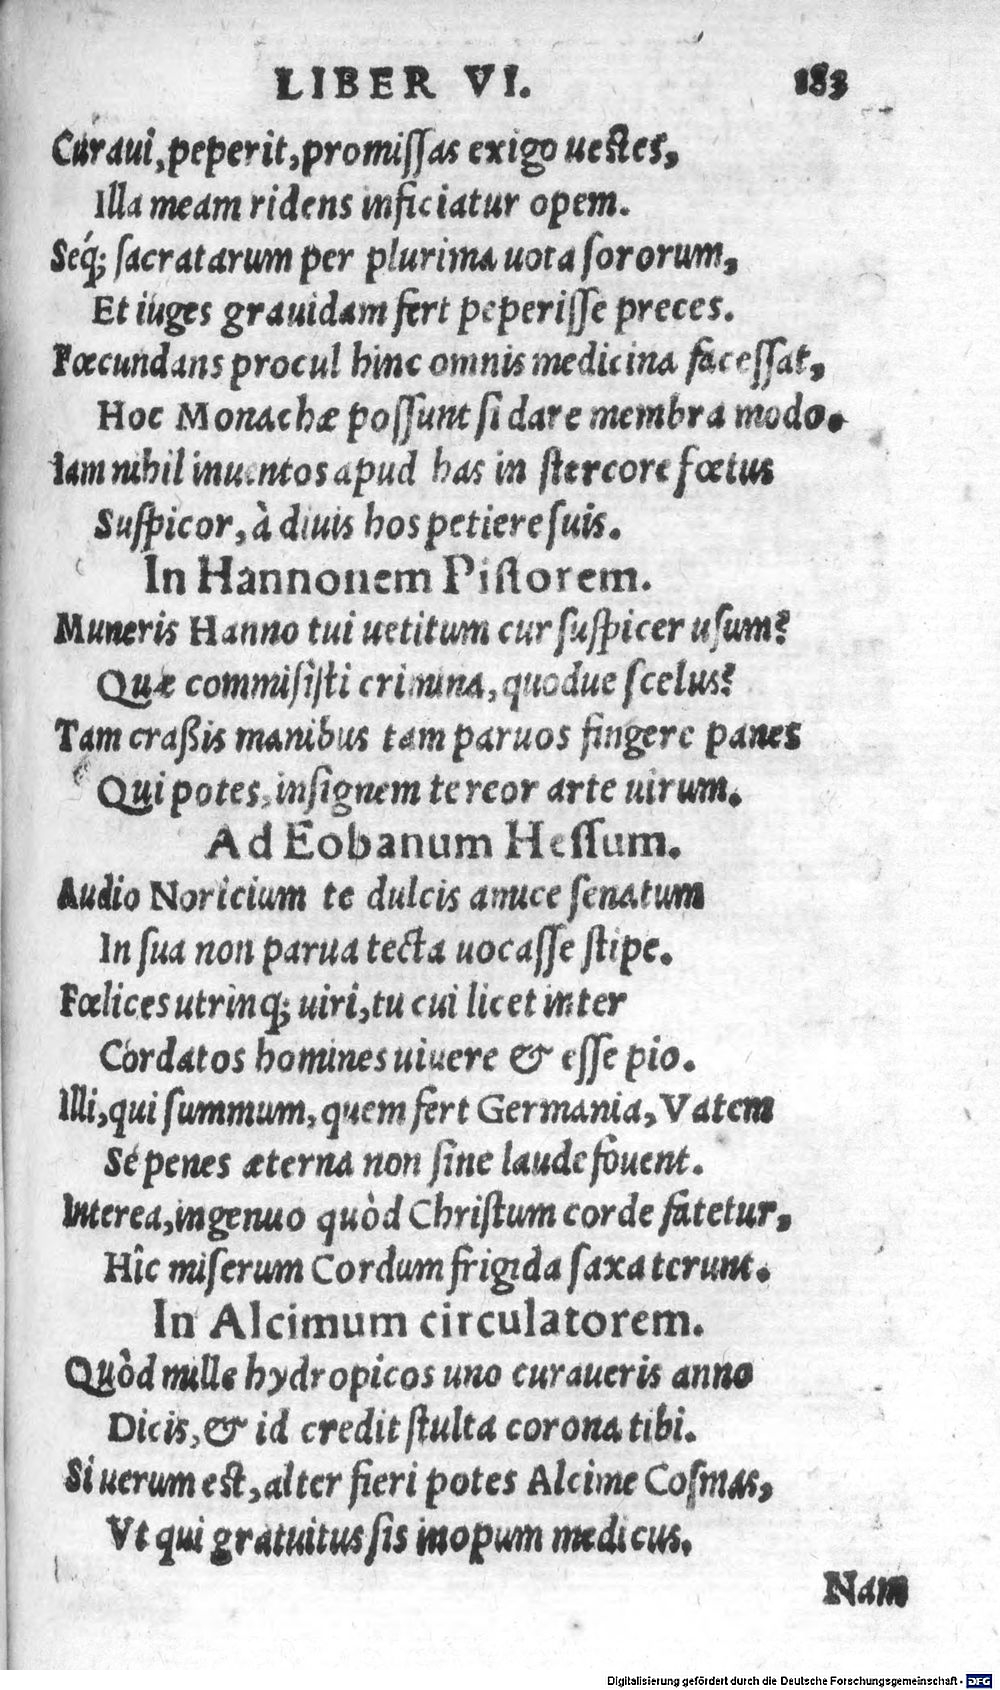 LIBER VI. 183
Curaui, peperit, promiſſas exigo ueſtes,
Illa meam ridens inficiatur opem.
Seq́; ſacratarum per plurima uota ſororum,
Et iuges grauidam fert peperiſſe preces.
Fœcundans procul hinc omnis medicina faceſſat,
Hoc Monachæ poſſunt ſi dare membra modo.
Iam nihil inuentos apud has in ſtercore fœtus
Suſpicor, à diuis hos petiere ſuis.
In Hannonem Piſtorem.
Muneris Hanno tui uetitum cur ſuſpicer uſum?
Quæ commiſiſti crimina, quodue ſcelus?
Tam craßis manibus tam paruos fingere panes
Qui potes, inſignem te reor arte uirum.
Ad Eobanum Heſſum.
Audio Noricium te dulcis amice ſenatum
In ſua non parua tecta uocaſſe ſtipe.
Fœlices utrinq; uiri, tu cui licet inter
Cordatos homines uiuere & eſſe pio.
Illi, qui ſummum, quem fert Germania, Vatem
Se penes æterna non ſine laude fouent.
Interea, ingenuo quòd Chriſtum corde fatetur,
Hîc miſerum Cordum frigida ſaxa terunt.
In Alcimum circulatorem.
Quòd mille hydropicos uno curaueris anno
Dicis, & id credit ſtulta corona tibi.
Si uerum eſt, alter fieri potes Alcime Coſmas,
Vt qui gratuitus ſis inopum medicus.
Nam
Digitalisierung gefördert durch die Deutsche Forschungsgemeinschaft - DFG